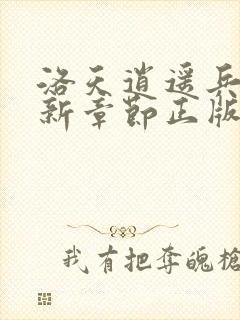 洛天逍遥兵
新章节正版
我有把夺魄枪